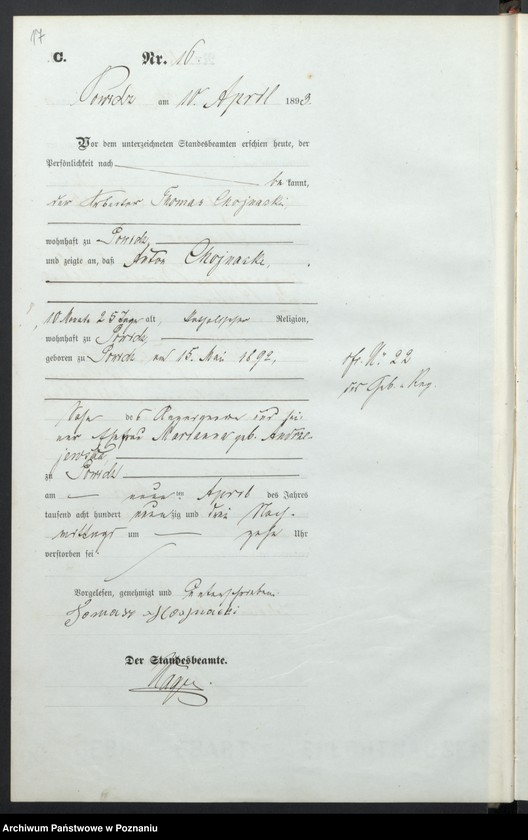 17
C. Nr. 16
Powidz am 10. April 1893.
Vor dem unterzeichneten Standesbeamten erschien heute, der
Persönlichkeit nach
bekannt,
der Arbeiter Thomas Chojnacki,
wohnhaft zu Powidz,
und zeigte an, daß Anton Chojnacki,
10 Monate 25 Tage alt, katholischer Religion,
wohnhaft zu Powidz,
geboren zu Powidz am 15. Mai 1892,
cfr. No 22
des Geb.-Reg.
Sohn des und sei-
ner Ehefrau Marianna geb. Andrze-
jewska
zu Powidz
am neunten April des Jahres
tausend acht hundert neunzig und drei Nach-
mittags um zehn Uhr
verstorben sei
Vorgelesen, genehmigt und unterschrieben.
Tomasz Chojnacki
Der Standesbeamte.
Archiwum Państwowe w Poznaniu